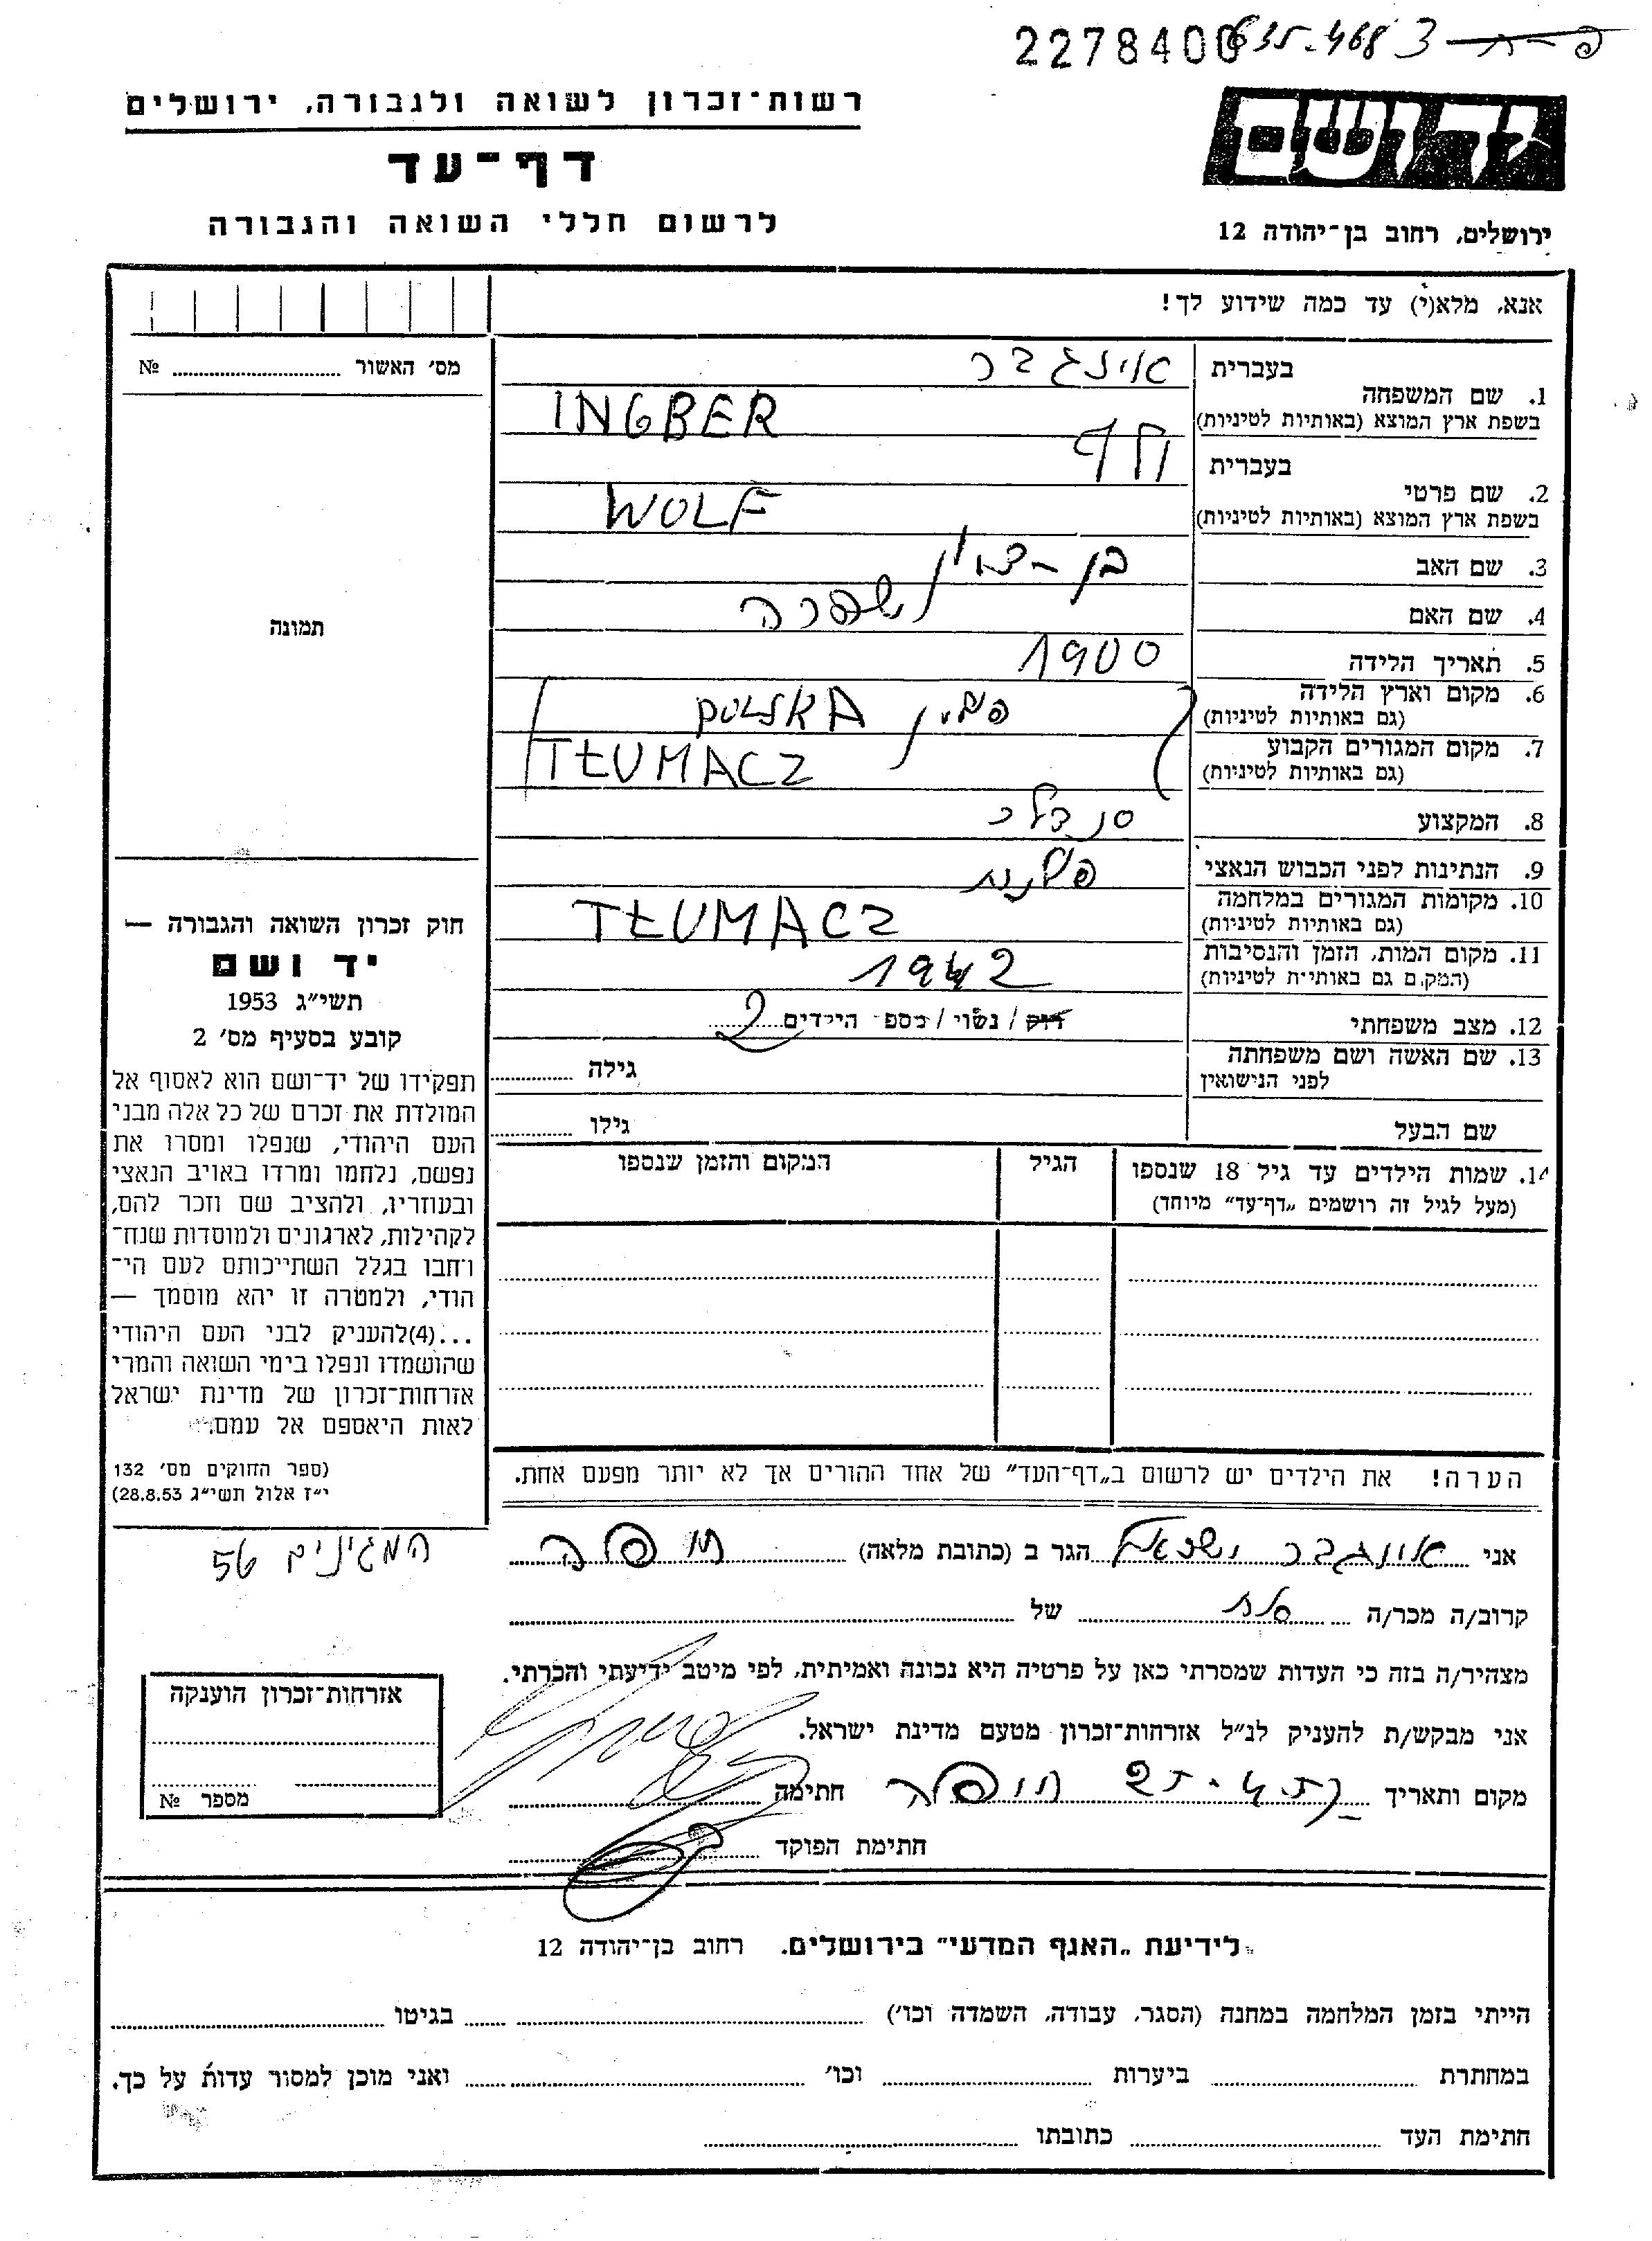 2278400 635-468 3
רשות־זכרון לשואה ולגבורה, ירושלים
דף־עד
לרשום חללי השואה והגבורה
ידושם
ירושלים, רחוב בן־יהודה 12
אנא, מלא(י) עד כמה שידוע לך!
מס׳ האשור № 
1. שם המשפחה
בעברית אינגבר
בשפת ארץ המוצא (באותיות לטיניות) INGBER
2. שם פרטי
בעברית
בשפת ארץ המוצא (באותיות לטיניות) WOLF
3. שם האב בן-ציון
4. שם האם שפרה
5. תאריך הלידה 1900
6. מקום וארץ הלידה פולין POLSKA
(גם באותיות לטיניות)
7. מקום המגורים הקבוע TŁUMACZ
(גם באותיות לטיניות)
8. המקצוע סנדלר
9. הנתינות לפני הכבוש הנאצי פולנית
10. מקומות המגורים במלחמה TŁUMACZ
(גם באותיות לטיניות)
11. מקום המות, הזמן והנסיבות 1942
(המקום גם באותיות לטיניות)
12. מצב משפחתי רוק / נשוי / מספר הילדים 2
13. שם האשה ושם משפחתה גילה
לפני הנישואין
שם הבעל גילו
14. שמות הילדים עד גיל 18 שנספו הגיל המקום והזמן שנספו
(מעל לגיל זה רושמים „דף־עד" מיוחד)
הערה! את הילדים יש לרשום ב„דף־העד" של אחד ההורים אך לא יותר מפעם אחת.
תמונה
חוק זכרון השואה והגבורה —
יד ושם
תשי״ג 1953
קובע בסעיף מס׳ 2
תפקידו של יד־ושם הוא לאסוף אל
המולדת את זכרם של כל אלה מבני
העם היהודי, שנפלו ומסרו את
נפשם, נלחמו ומרדו באויב הנאצי
ובעוזריו, ולהציב שם וזכר להם,
לקהילות, לארגונים ולמוסדות שנח־
רחבו בגלל השתייכותם לעם הי־
הודי, ולמטרה זו יהא מוסמך —
...(4)להעניק לבני העם היהודי
שהושמדו ונפלו בימי השואה והמרי
אזרחות־זכרון של מדינת ישראל
לאות היאספם אל עמם.
(ספר החוקים מס׳ 132
י״ז אלול תשי״ג 28.8.53)
אני אינגבר ישראל הגר ב (כתובת מלאה) חיפה המגינים 56
קרוב/ה מכר/ה של
מצהיר/ה בזה כי העדות שמסרתי כאן על פרטיה היא נכונה ואמיתית, לפי מיטב ידיעתי והכרתי.
אני מבקש/ת להעניק לנ״ל אזרחות־זכרון מטעם מדינת ישראל.
מקום ותאריך חיפה חתימה
חתימת הפוקד
אזרחות־זכרון הוענקה
מספר №
לידיעת „האגף המדעי" בירושלים, רחוב בן־יהודה 12
הייתי בזמן המלחמה במחנה (הסגר, עבודה, השמדה וכו׳) בגיטו
במחתרת ביערות וכו׳ ואני מוכן למסור עדות על כך.
חתימת העד כתובתו